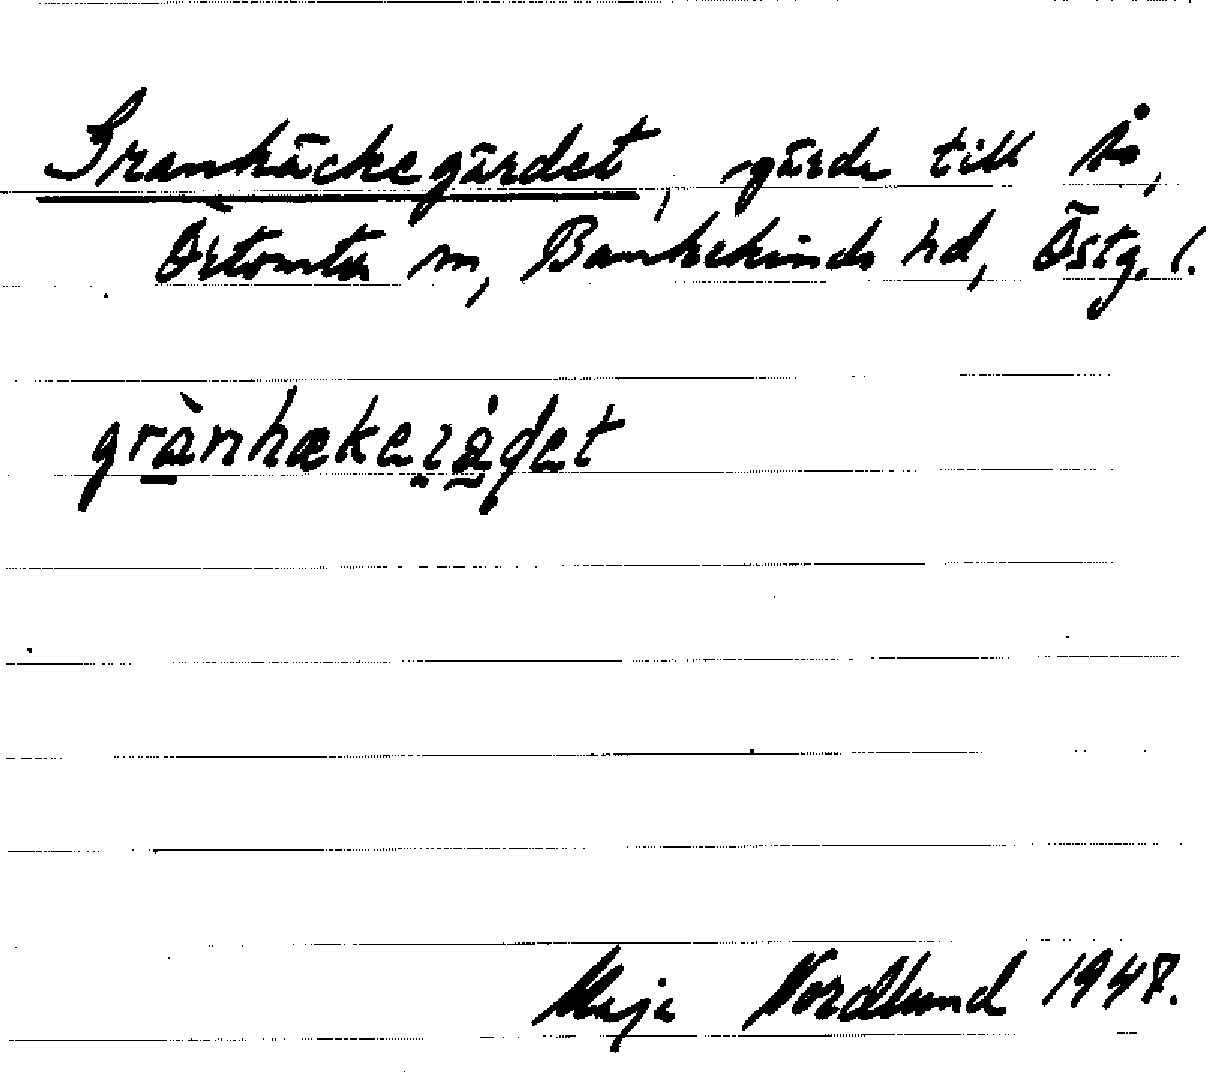 Granhäckegärdet, gärde till Ås,
Örtomta sn, Bankekinds hd, Östg. l.
grànhækeɿåḍet
Maja Nordlund 1947.